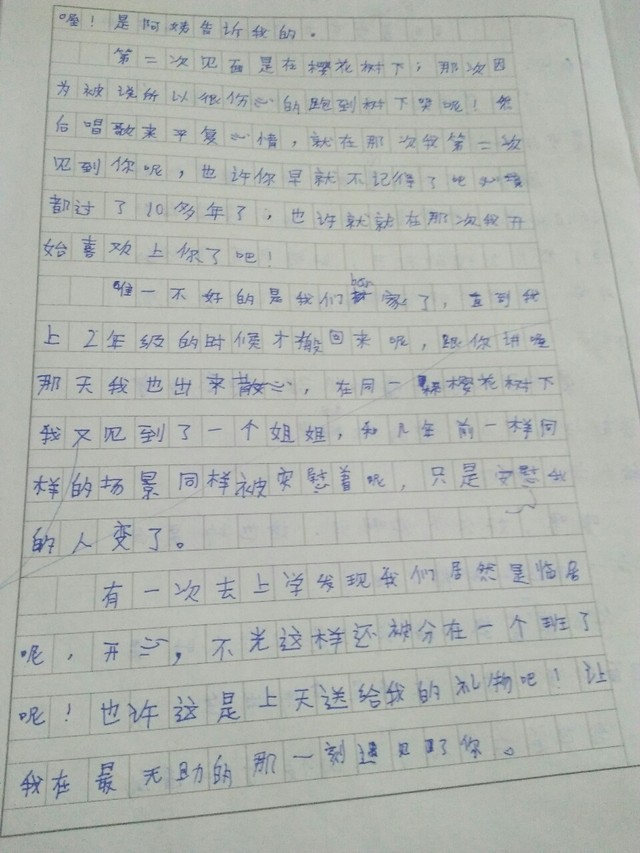 喔！是阿姨告诉我的。
第二次见面是在樱花树下；那次因
为被说所以很伤心的跑到树下哭呢！然
后唱歌来平复心情，就在那次我第二次
见到你呢，也许你早就不记得了吧
都过了10多年了；也许就就在那次我开
始喜欢上你了吧！
唯一不好的是我们ban家了，直到我
上2年级的时候才搬回来呢，跟你讲喔
那天我也出来散心，在同一棵樱花树下
我又见到了一个姐姐，和几年前一样同
样的场景同样被安慰着呢，只是安慰我
的人变了。
有一次去上学发现我们居然是临居
呢，开心，不光这样还被分在一个班了
呢！也许这是上天送给我的礼物吧！让
我在最无助的那一刻遇见了你。